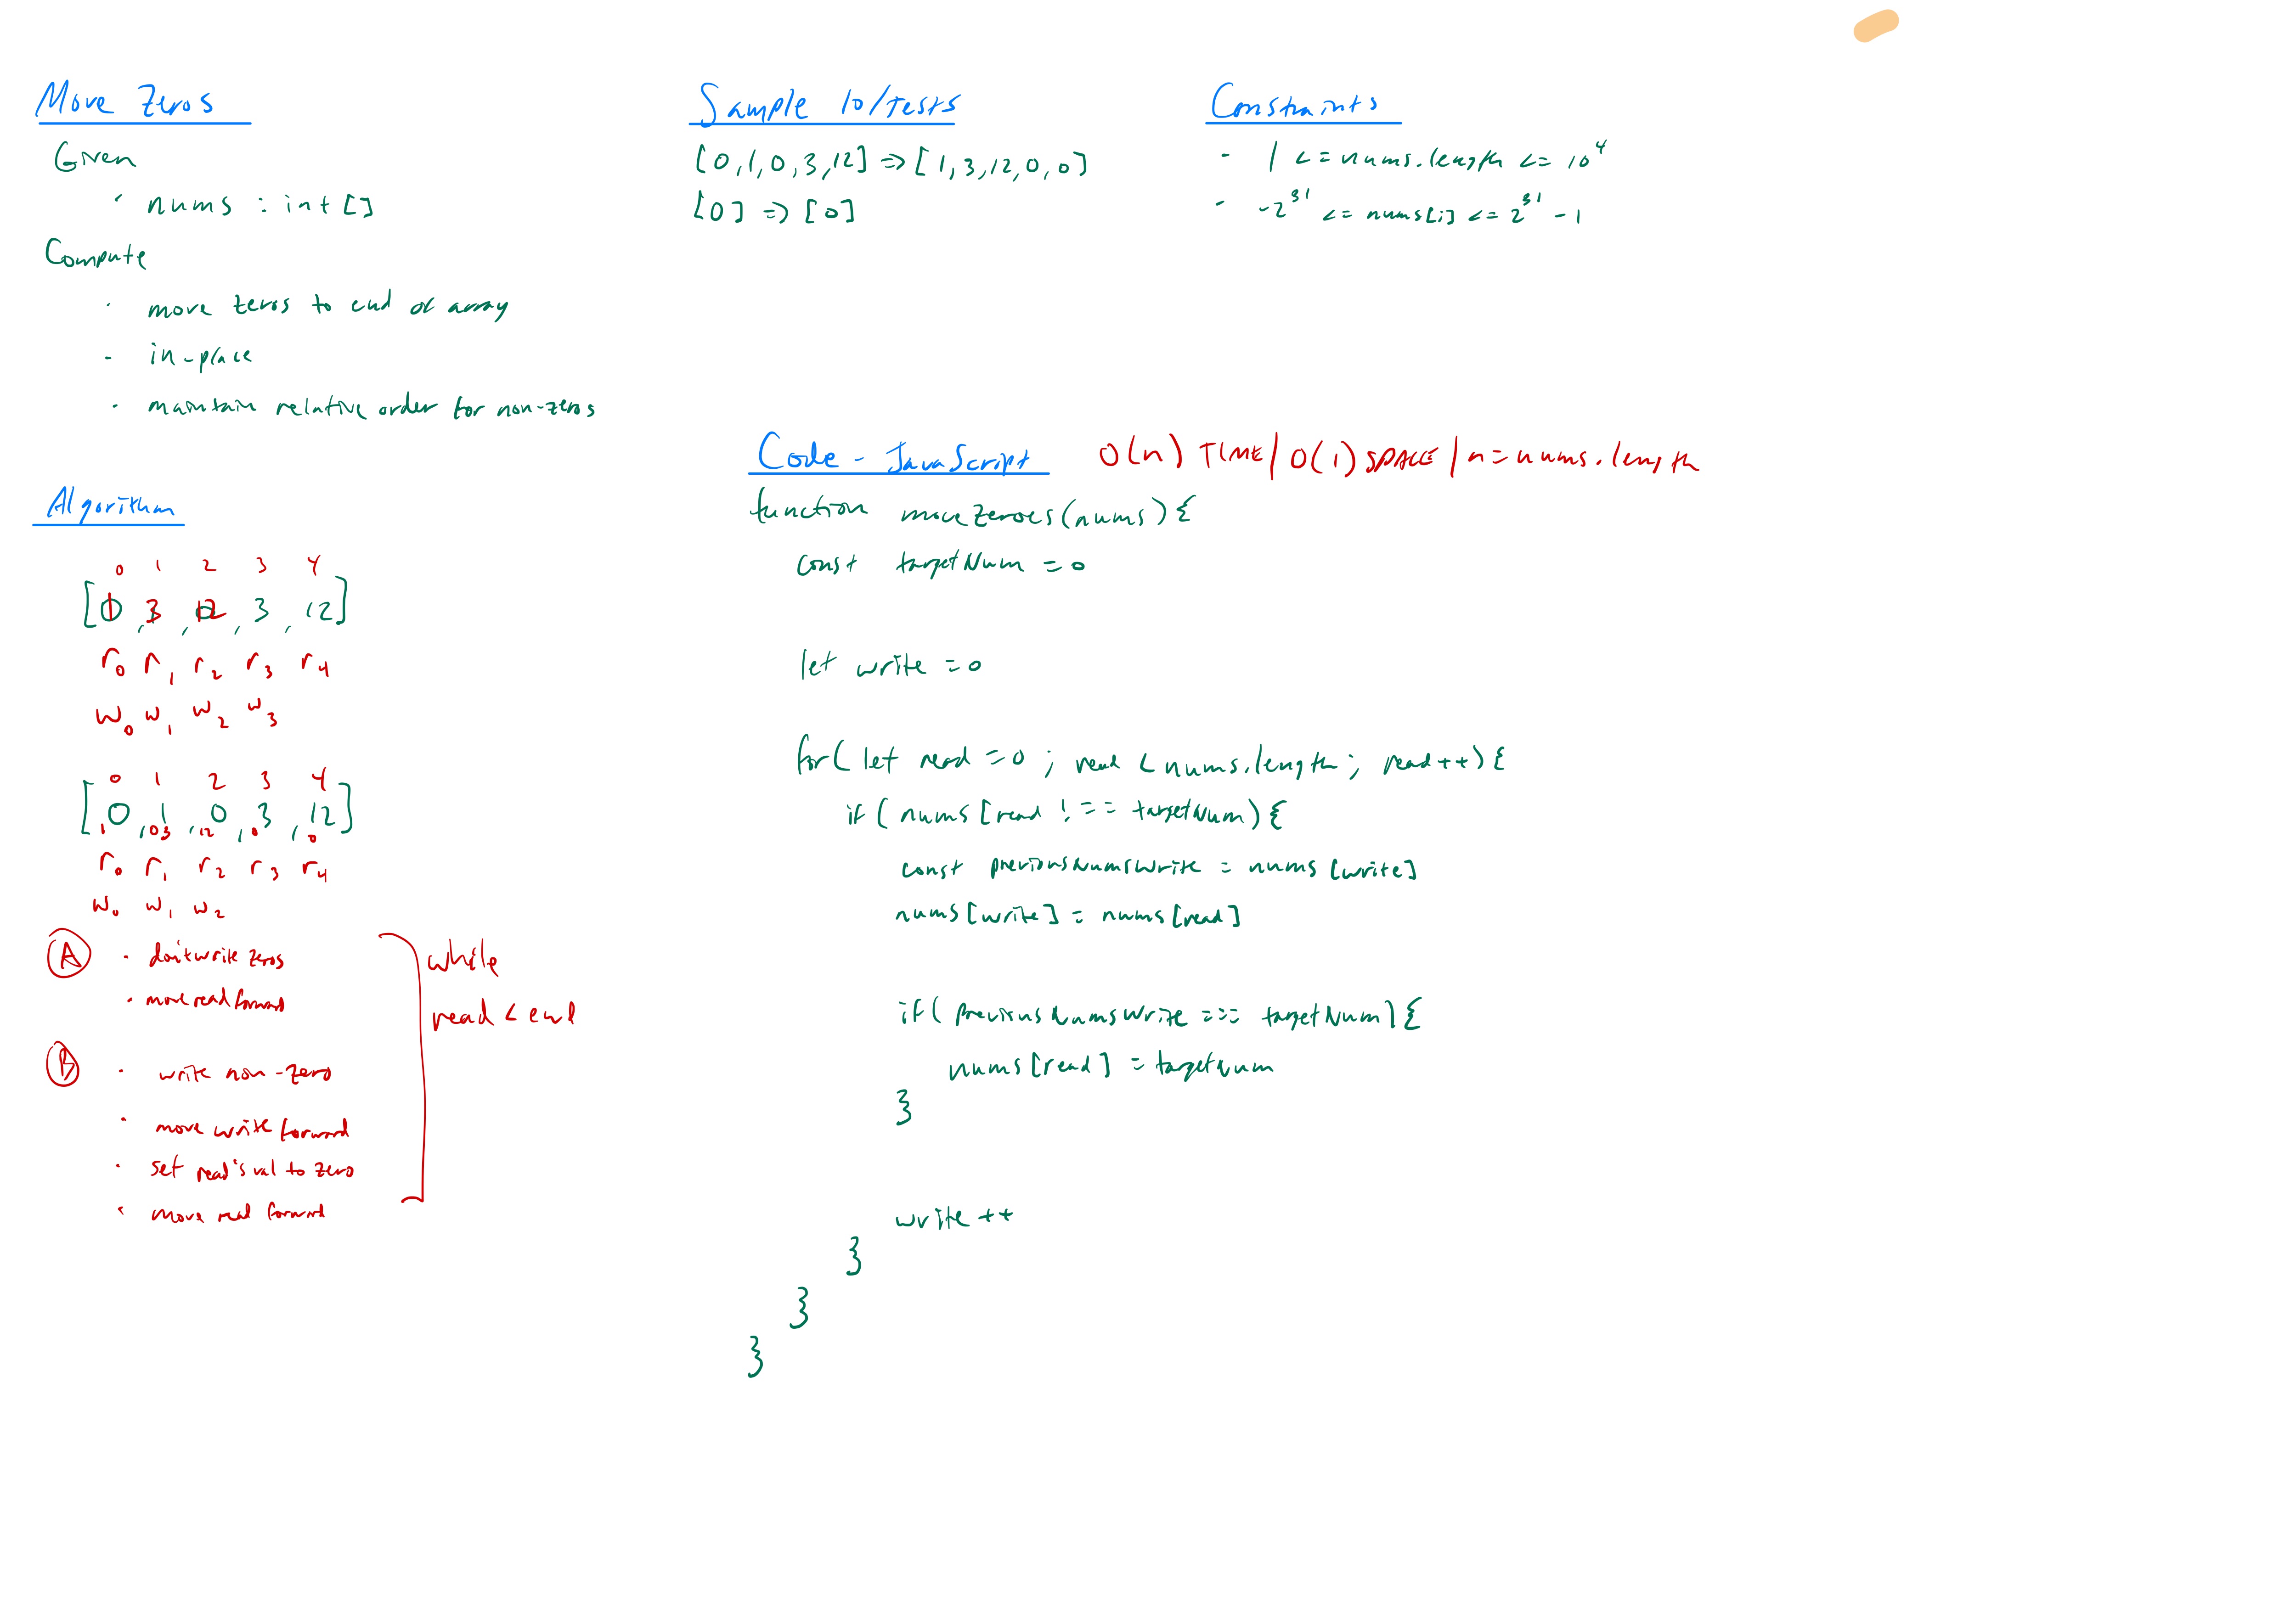 Move Zeros
Given
· nums : int[]
Compute
· move zeros to end of array
- in-place
· maintain relative order for non-zeros
Sample IO/Tests
[0,1,0,3,12] => [1,3,12,0,0]
[0] => [0]
Constraints
- 1 <= nums.length <= 10^4
- -2^31 <= nums[i] <= 2^31 - 1
Algorithm
0 1 2 3 4
[0, 3, 12, 3, 12]
r0 r1 r2 r3 r4
w0 w1 w2 w3
0 1 2 3 4
[0, 1, 0, 3, 12]
1 03 12 0 0
r0 r1 r2 r3 r4
w0 w1 w2
A · don't write zeros
· move read forward
B · write non-zero
· move write forward
· set read's val to zero
· move read forward
while
read < end
Code - JavaScript O(n) TIME | O(1) SPACE | n = nums.length
function moveZeroes(nums){
const targetNum = 0
let write = 0
for( let read = 0 ; read < nums.length ; read++){
if( nums[read !== targetNum){
const previousNumsWrite = nums[write]
nums[write] = nums[read]
if( previousNumsWrite === targetNum){
nums[read] = targetNum
}
write++
}
}
}